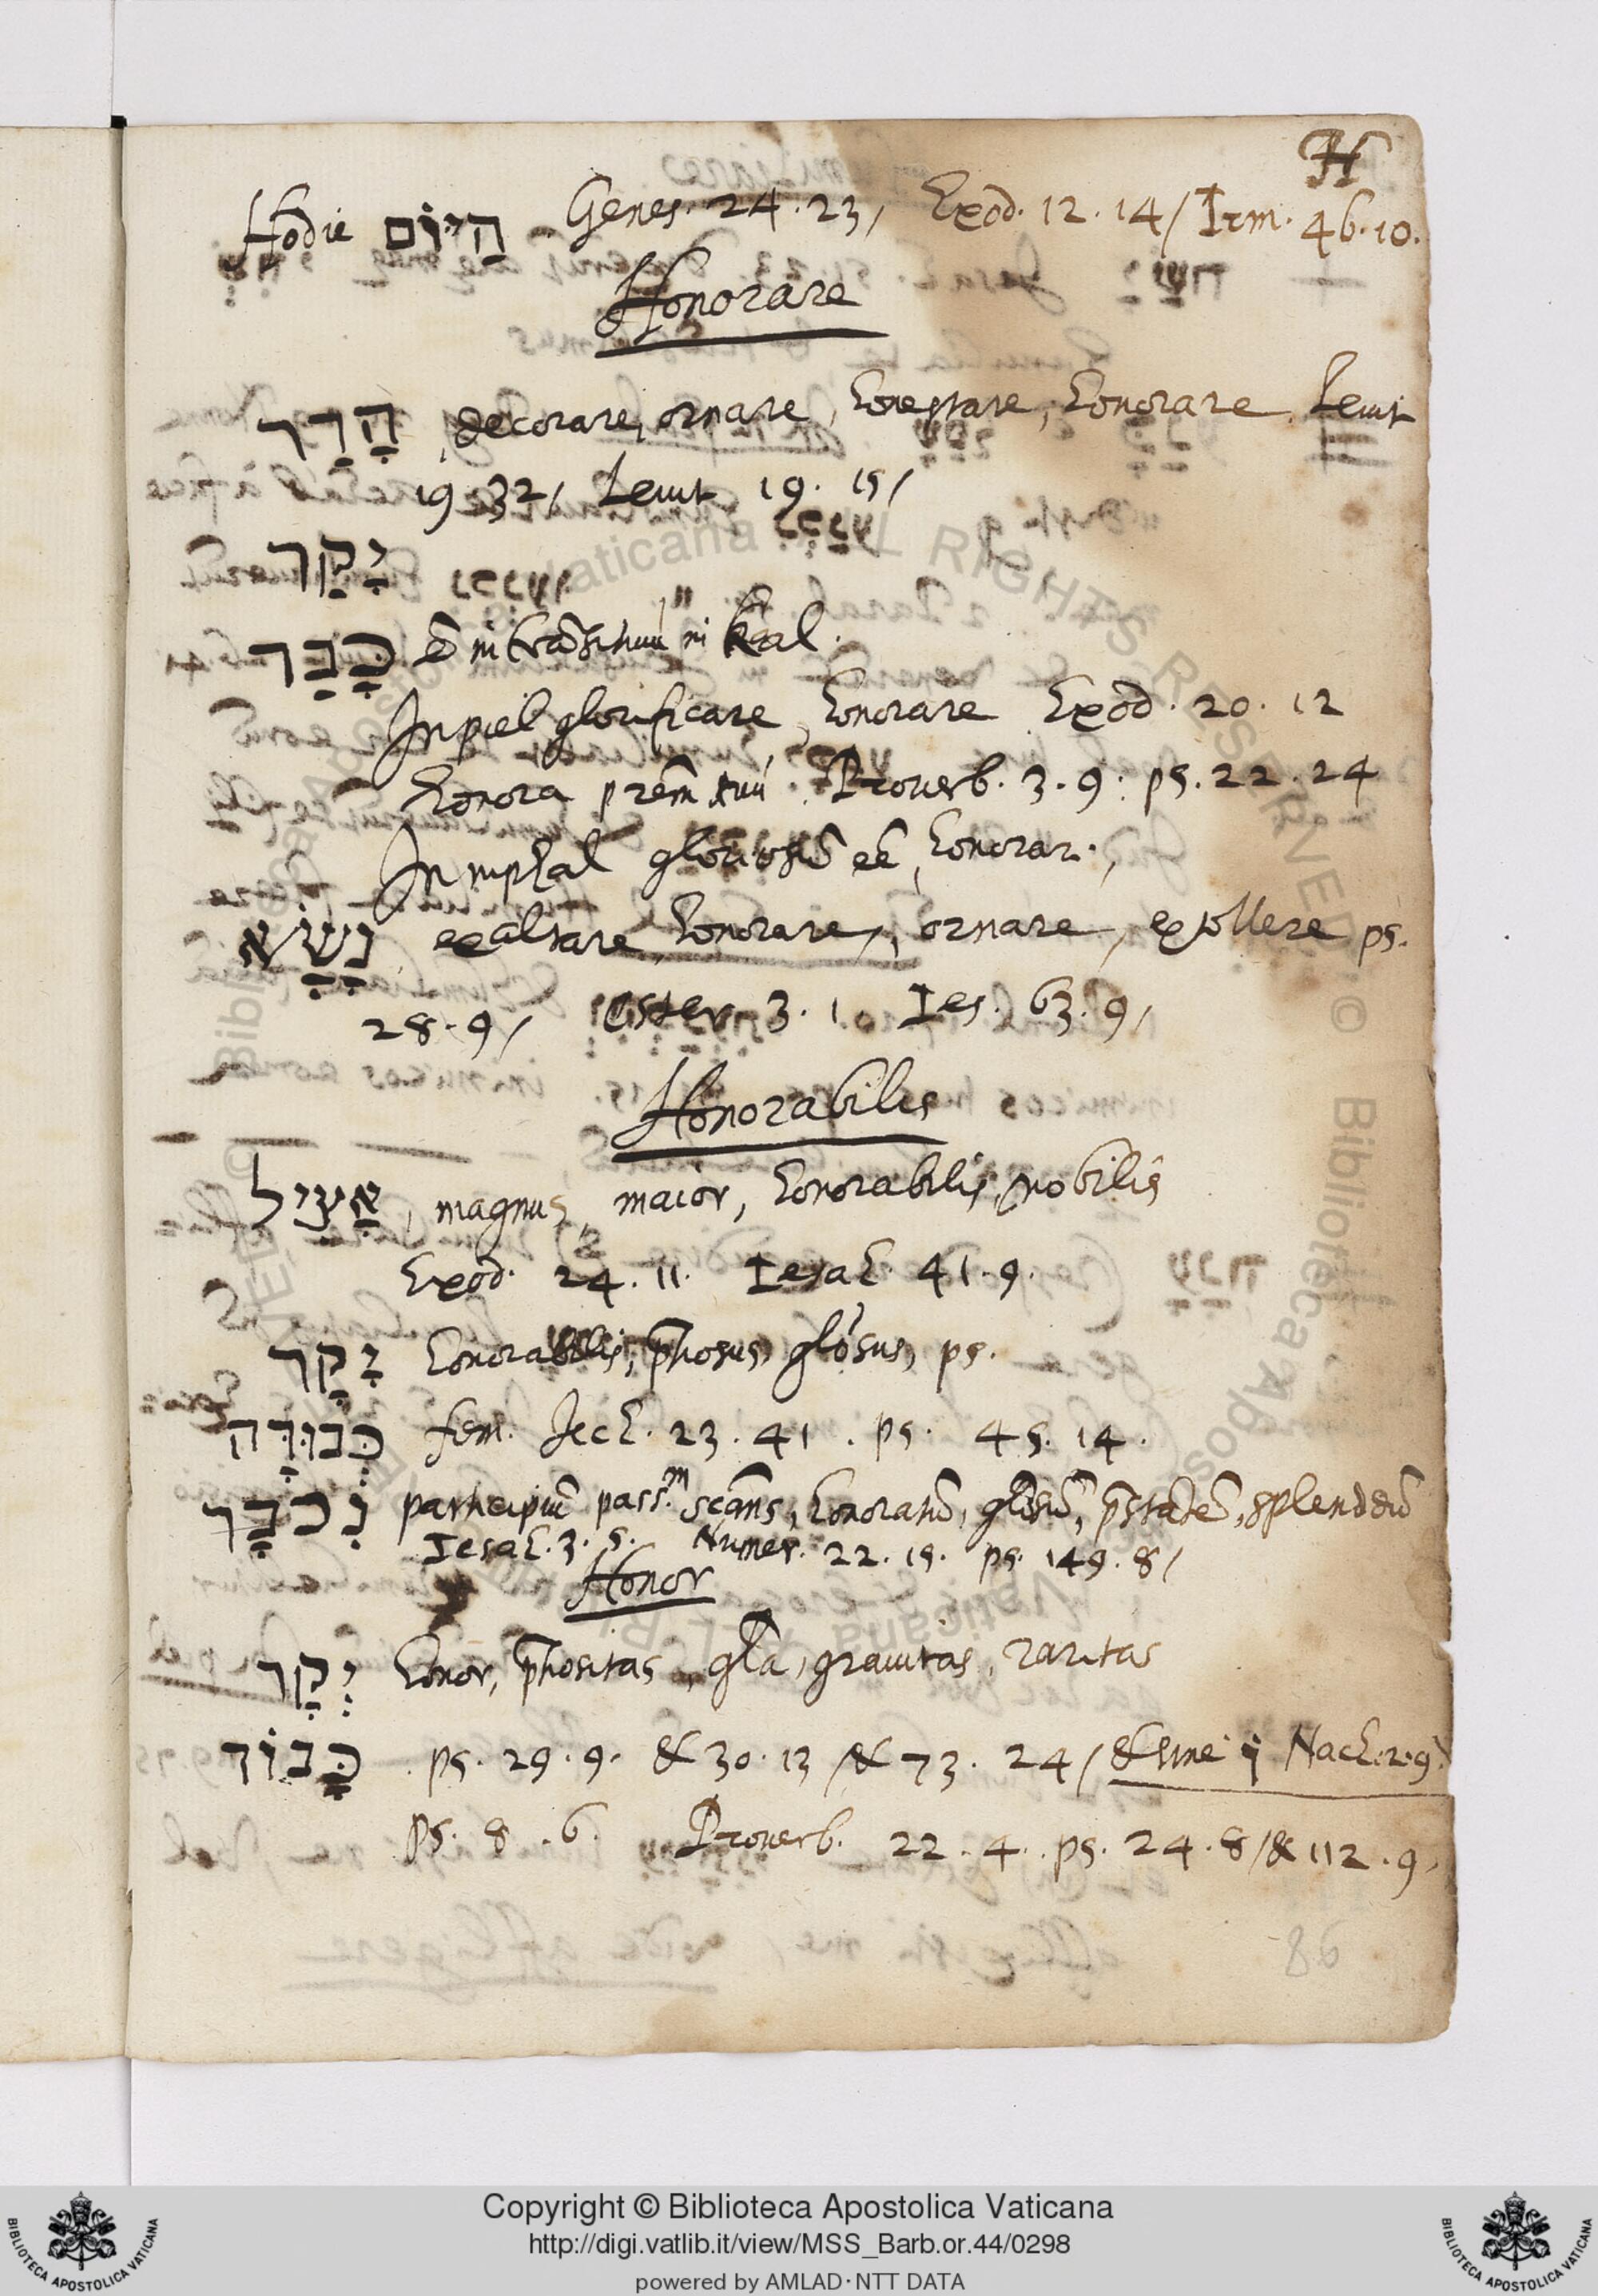 H
Hodie הַיּוֹם Genes. 24. 23, Exod. 12. 14 / Irm. 46. 10.
Honorare
הָדַר, decorare, ornare, honestare, honorare Leuit
19. 32, Leuit 19. 15,
יָקַר
כָּבַד ē intransitiuū in kal.
In piel glorificare, honorare Exod. 20. 12
honora prēm tuū. Prouerb. 3. 9. ps. 22. 24
In niphal gloriosū eē, honorari.,
נָשָׂא exaltare, honorare, ornare, extollere ps.
28. 9, ester 3. 1. Ies. 63. 9,
Honorabilis
אָצִיל, magnus, maior, honorabilis, nobilis
Exod. 24. 11. Iesah. 41. 9.
יָקָר honorabilis, p̄tiosus, glōsus, ps.
כְּבוּדָּה fem. Iech. 23. 41. ps. 45. 14.
נִכבָּד participiū pass.m scāns, honoratū, glōsū, p̄stātē, splendidū
Iesah. 3. 5. Numer. 22. 15. ps. 149. 8,
Honor
יְקָר honor, p̄tiositas, glā, grauitas, raritas
כָּבוֹד ps. 29. 9. & 30. 13, & 73. 24, & sine ו Nach. 2. 9.
ps. 8. 6. Prouerb. 22. 4. ps. 24. 8, & 112. 9,
86
Copyright © Biblioteca Apostolica Vaticana
http://digi.vatlib.it/view/MSS_Barb.or.44/0298
powered by AMLAD·NTT DATA
BIBLIOTECA APOSTOLICA VATICANA
BIBLIOTECA APOSTOLICA VATICANA